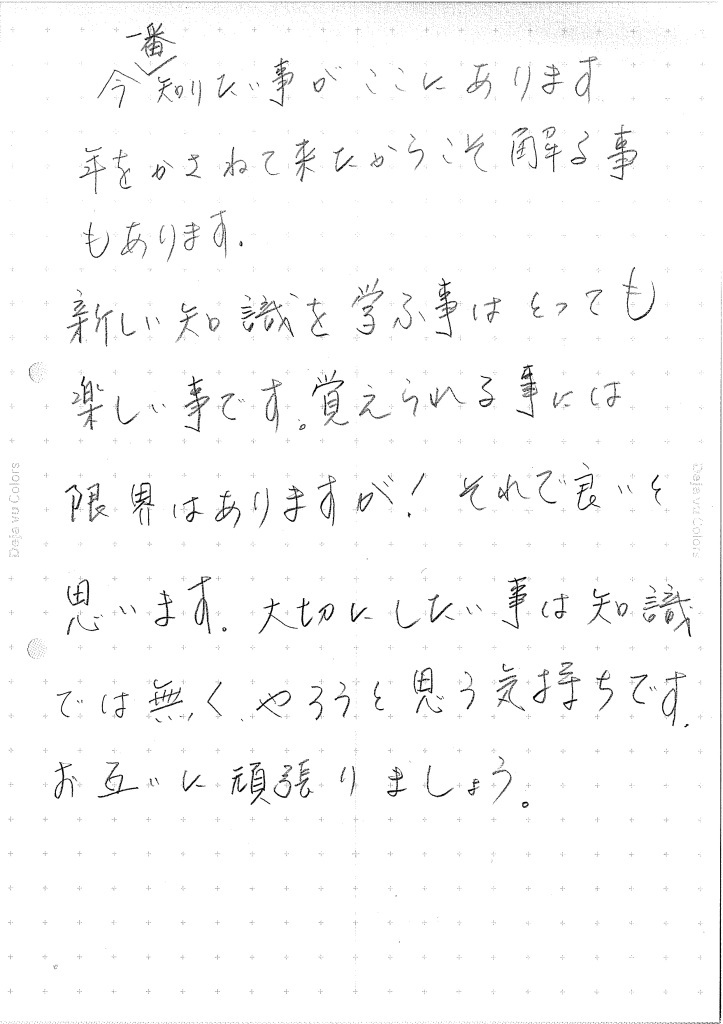 今一番知りたい事がここにあります
年をかさねて来たからこそ解る事
もあります.
新しい知識を学ぶ事はとっても
楽しい事です。覚えられる事には
限界はありますが！それで良いと
思います.大切にしたい事は知識
では無く、やろうと思う気持ちです.
お互いに頑張りましょう。
Deja vu Colors
Deja vu Colors